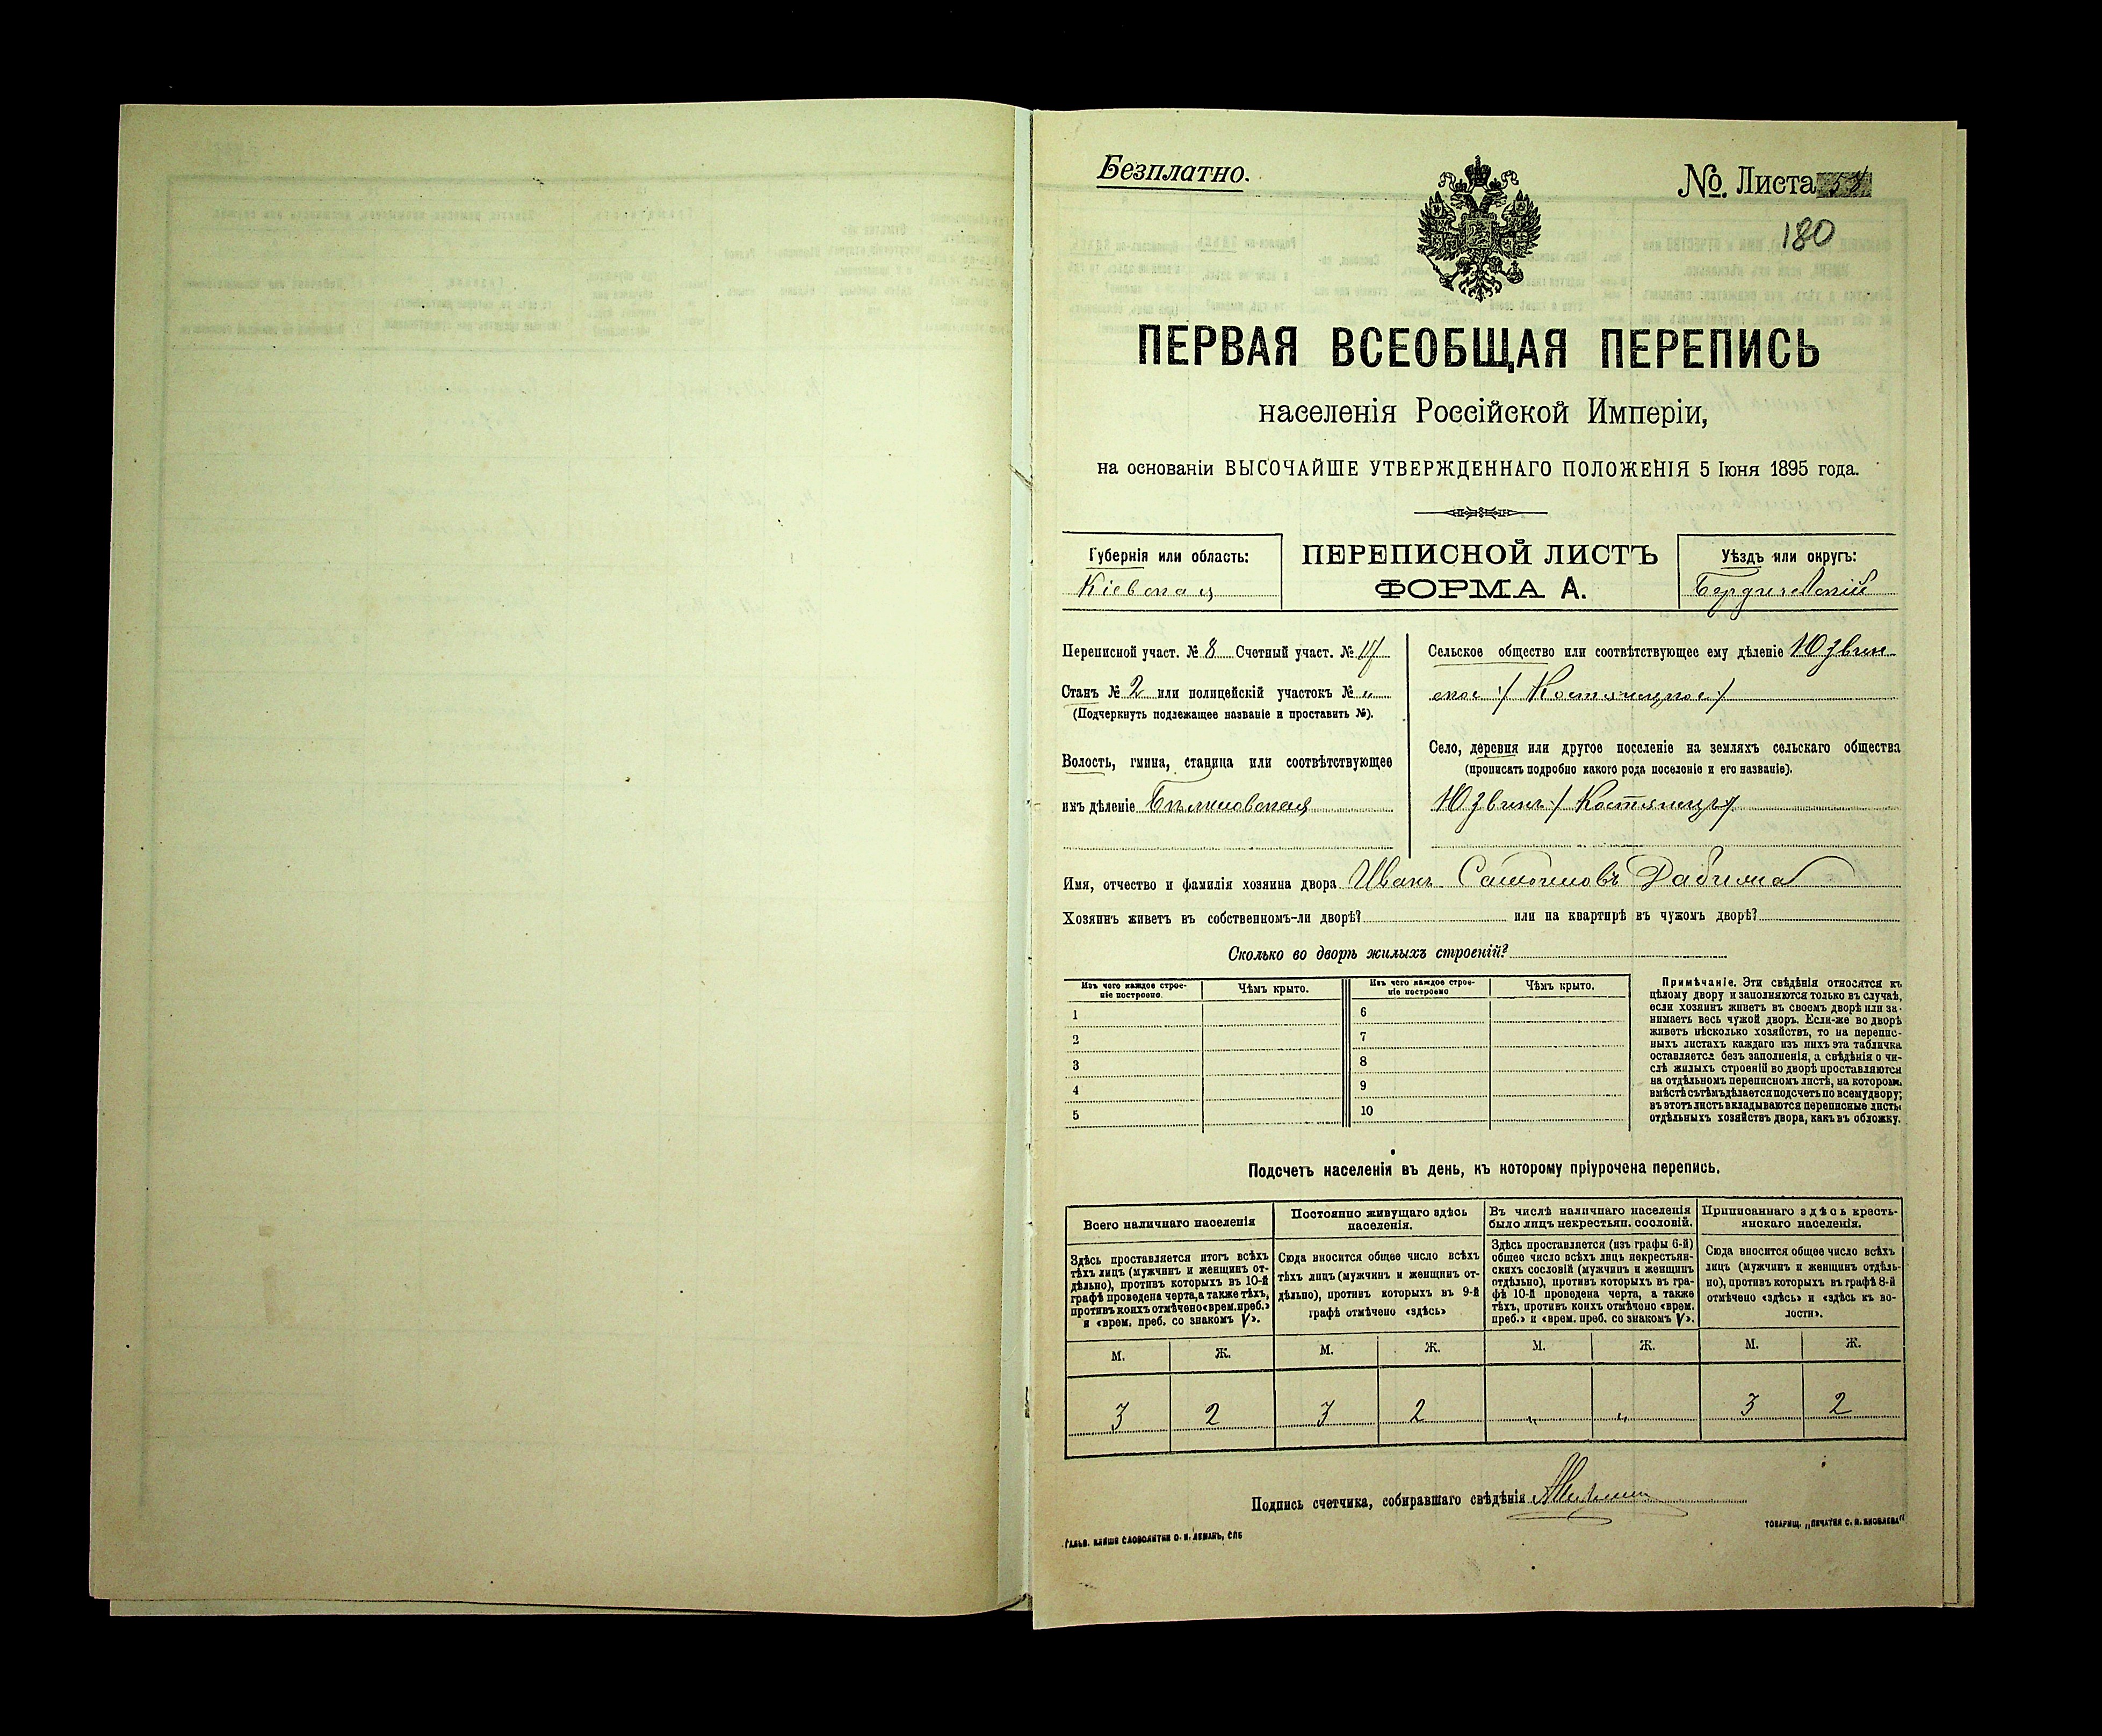 Безплатно.
№. Листа 58
180
ПЕРВАЯ ВСЕОБЩАЯ ПЕРЕПИСЬ
населенія Россійской Имперіи,
на основаніи ВЫСОЧАЙШЕ УТВЕРЖДЕННАГО ПОЛОЖЕНІЯ 5 Іюня 1895 года.
Губернія или область:
Кіевская
ПЕРЕПИСНОЙ ЛИСТЪ
ФОРМА А.
Уѣздъ или округъ:
Бердичевскій
Переписной участ. № 8 Счетный участ. № 17
Станъ № 2 или полицейскій участокъ № „
(Подчеркнуть подлежащее названіе и проставить №).
Волость, гмина, станица или соотвѣтствующее
имъ дѣленіе Бѣлиловская
Сельское общество или соотвѣтствующее ему дѣленіе Юзвин-
ское / Костянецкое /
Село, деревня или другое поселеніе на земляхъ сельскаго общества
(прописать подробно какого рода поселеніе и его названіе).
Юзвинъ / Костянецъ /
Имя, отчество и фамилія хозяина двора Иванъ Дадима
Хозяинъ живетъ въ собственномъ-ли дворѣ? или на квартирѣ въ чужомъ дворѣ?
Сколько во дворѣ жилыхъ строеній?
Изъ чего каждое строе-
ніе построено.
Чѣмъ крыто.
Изъ чего каждое строе-
ніе построено
Чѣмъ крыто.
1
2
3
4
5
6
7
8
9
10
Примѣчаніе. Эти свѣдѣнія относятся къ
цѣлому двору и заполняются только въ случаѣ,
если хозяинъ живетъ въ своемъ дворѣ или за-
нимаетъ весь чужой дворъ. Если-же во дворѣ
живетъ нѣсколько хозяйствъ, то на перепис-
ныхъ листахъ каждаго изъ нихъ эта табличка
оставляется безъ заполненія, а свѣдѣнія о чи-
слѣ жилыхъ строеній во дворѣ проставляются
на отдѣльномъ переписномъ листѣ, на которомъ
вмѣстѣ съ тѣмъ дѣлается подсчетъ по всему двору;
въ этотъ листъ вкладываются переписные листы
отдѣльныхъ хозяйствъ двора, какъ въ обложку.
Подсчетъ населенія въ день, къ которому пріурочена перепись.
Всего наличнаго населенія
Здѣсь проставляется итогъ всѣхъ
тѣхъ лицъ (мужчинъ и женщинъ от-
дѣльно), противъ которыхъ въ 10-й
графѣ проведена черта, а также тѣхъ,
противъ коихъ отмѣчено «врем. преб.»
и «врем. преб. со знакомъ V».
Постоянно живущаго здѣсь
населенія.
Сюда вносится общее число всѣхъ
тѣхъ лицъ (мужчинъ и женщинъ от-
дѣльно), противъ которыхъ въ 9-й
графѣ отмѣчено «здѣсь»
Въ числѣ наличнаго населенія
было лицъ некрестьян. сословій.
Здѣсь проставляется (изъ графы 6-й)
общее число всѣхъ лицъ некрестьян-
скихъ сословій (мужчинъ и женщинъ
отдѣльно), противъ которыхъ въ гра-
фѣ 10-й проведена черта, а также
тѣхъ, противъ коихъ отмѣчено «врем.
преб.» и «врем. преб. со знакомъ V».
Приписаннаго здѣсь кресть-
янскаго населенія.
Сюда вносится общее число всѣхъ
лицъ (мужчинъ и женщинъ отдѣль-
но), противъ которыхъ въ графѣ 8-й
отмѣчено «здѣсь» и «здѣсь къ во-
лости».
М. Ж. М. Ж. М. Ж. М. Ж.
3 2 3 2 „ „ 3 2
Подпись счетчика, собиравшаго свѣдѣнія
ГАЛЬВ. КЛИШЕ СЛОВОЛИТНИ О. И. ЛЕМАНЪ, СПБ
ТОВАРИЩ. „ПЕЧАТНЯ С. П. ЯКОВЛЕВА"